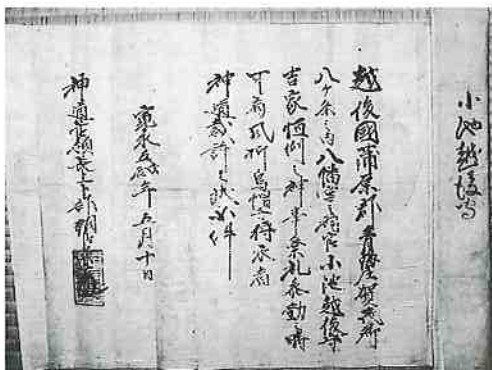 小池越後守
越後國蒲原郡青海庄賀茂郷
八ヶ条之内八幡宮之祠官小池越後守
吉家恒例之神事祭礼参勤之時
可着風折烏帽子狩衣者
神道裁許之状如件
永五年五月十日
神道管領長上卜部朝臣